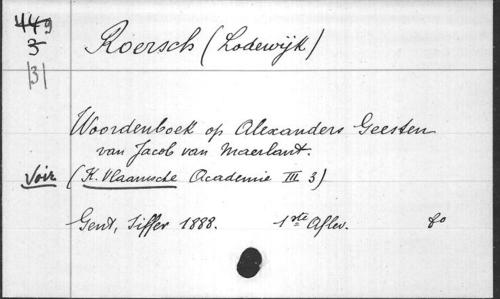 449
3
|3|
Roersch (Lodewijk)
Woordenboek op Alexanders Geesten
van Jacob van Maerlant.
Voir (K. Vlaamsche Academie III 3)
Gent, Siffer 1888. 1ste Aflev. 8o